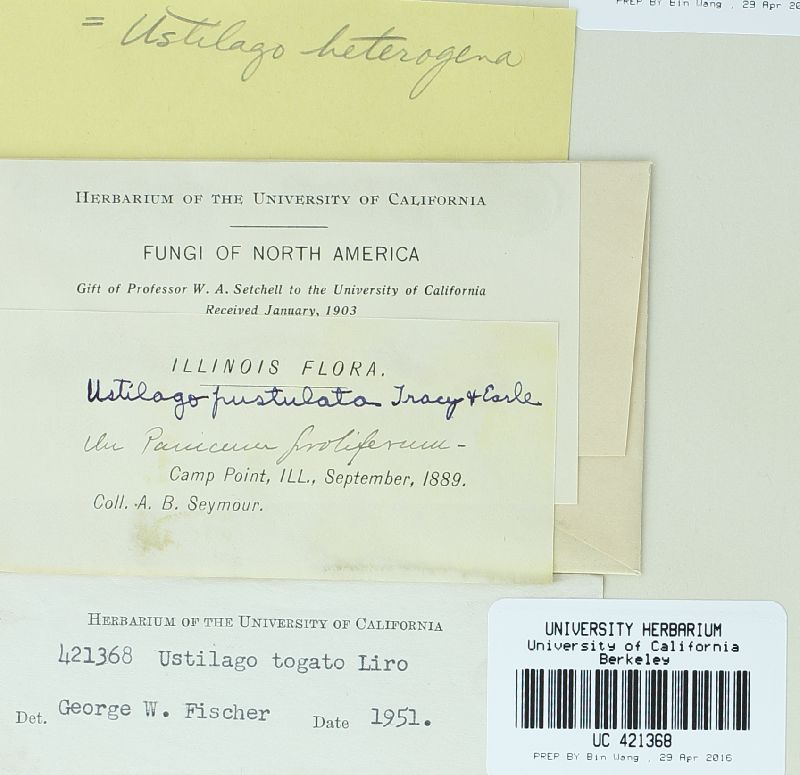 PREP BY Bin Wang , 29 Apr 20
= Ustilago heterogena
HERBARIUM OF THE UNIVERSITY OF CALIFORNIA
FUNGI OF NORTH AMERICA
Gift of Professor W. A. Setchell to the University of California
Received January, 1903
ILLINOIS FLORA.
Ustilago pustulata Tracy & Earle
On Panicum proliferum -
Camp Point, ILL., September, 1889.
Coll. A. B. Seymour.
HERBARIUM OF THE UNIVERSITY OF CALIFORNIA
421368 Ustilago togato Liro
Det. George W. Fischer Date 1951.
UNIVERSITY HERBARIUM
University of California
Berkeley
UC 421368
PREP BY Bin Wang , 29 Apr 2016